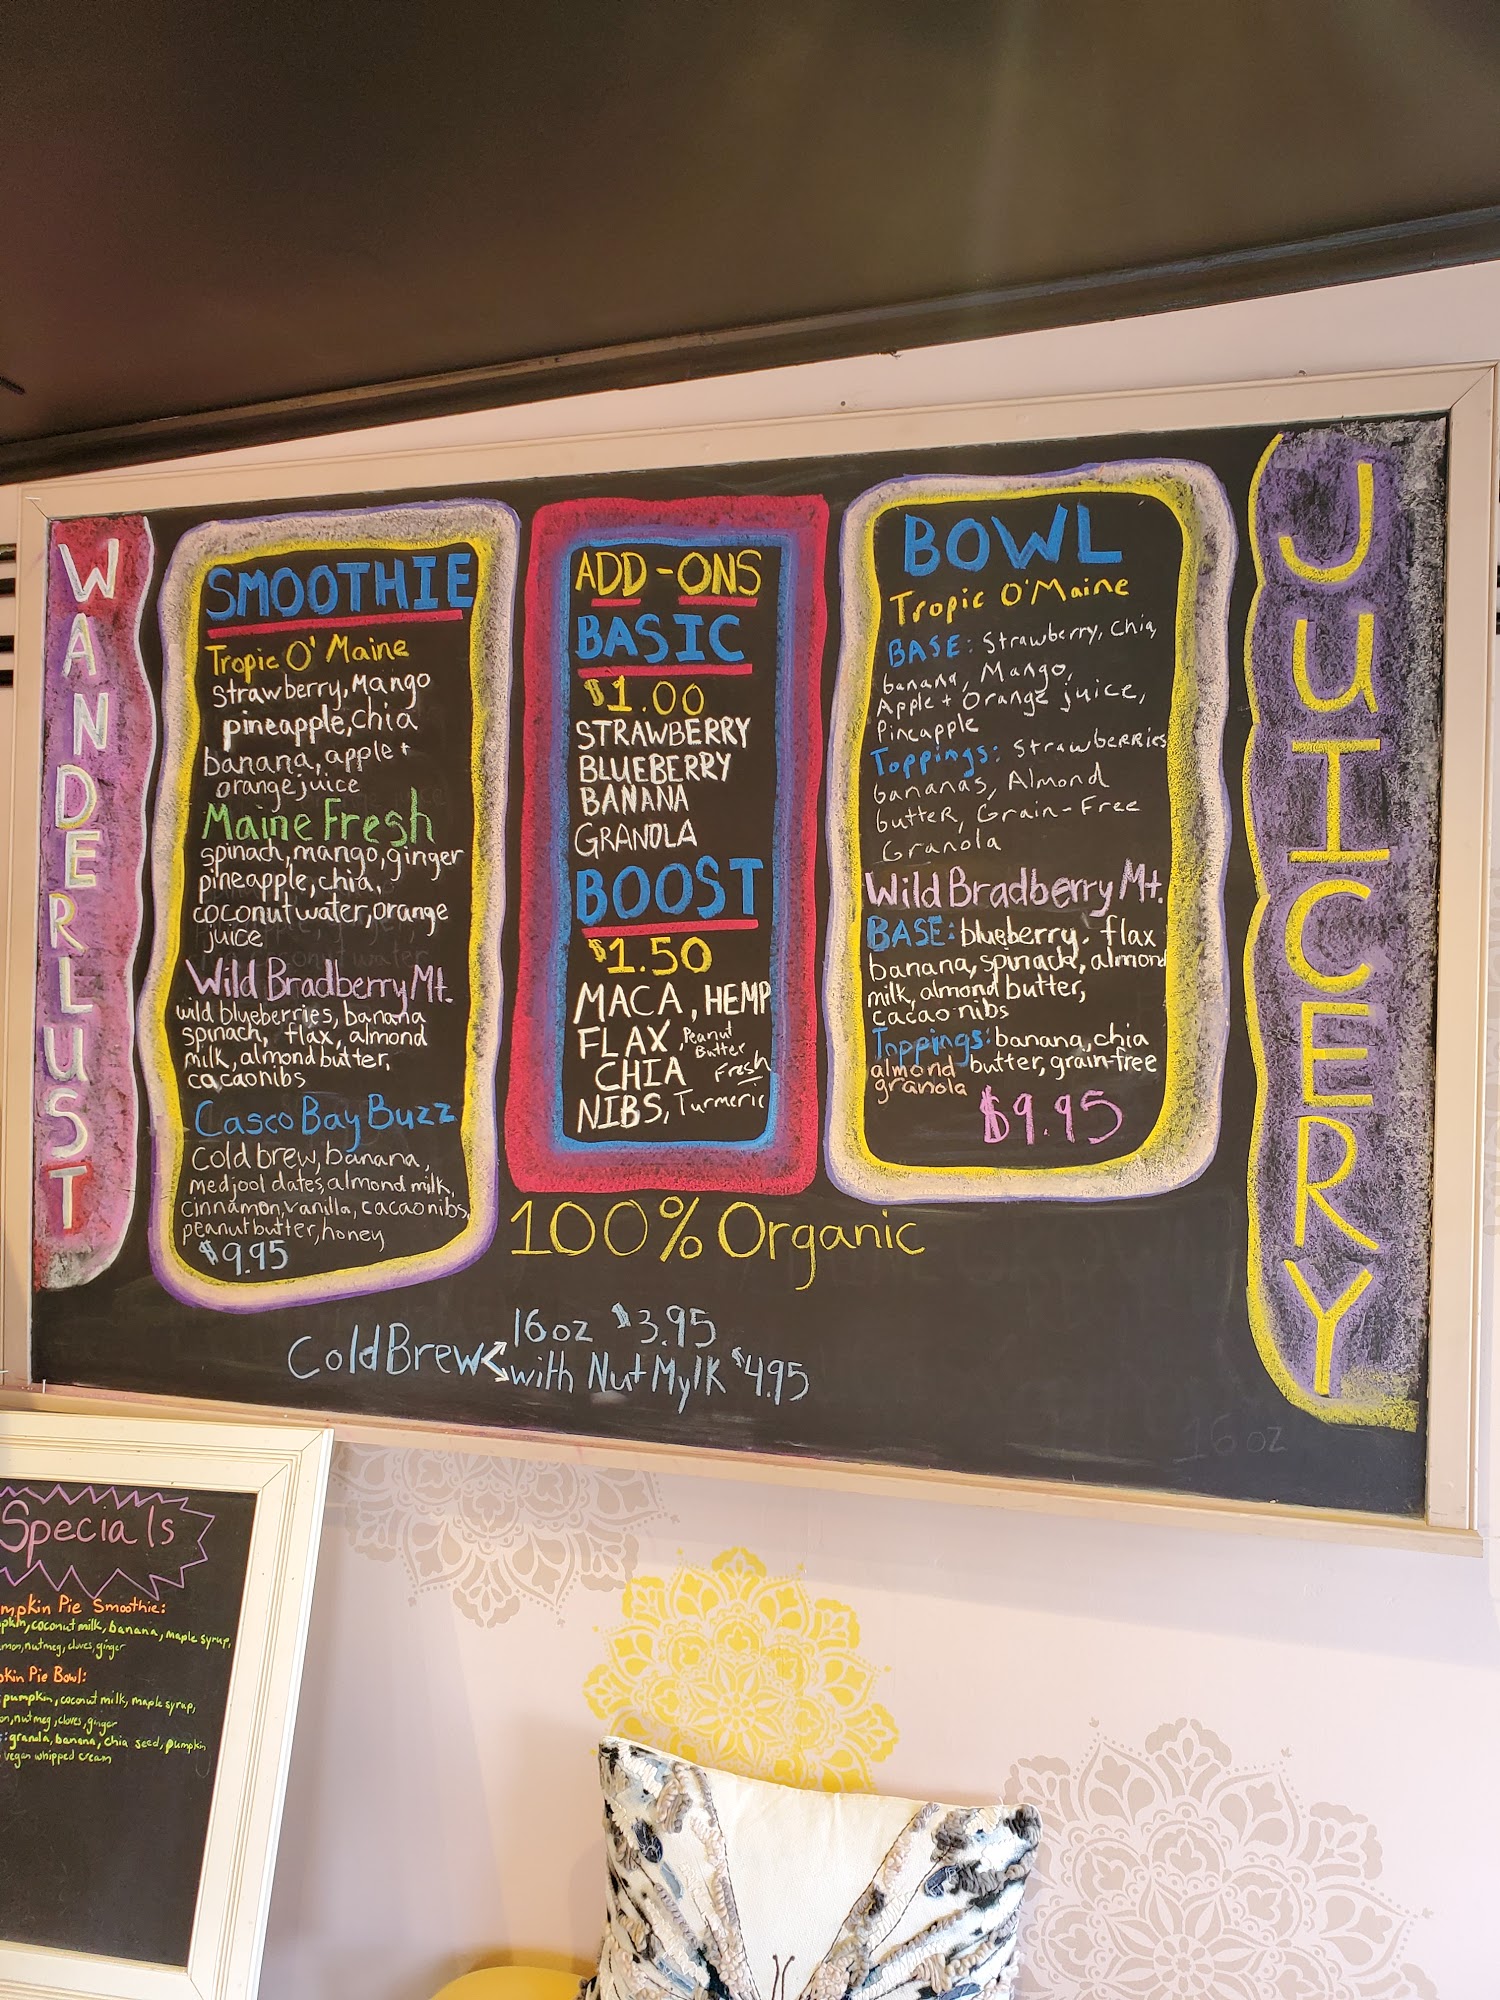 WANDERLUST
SMOOTHIE
Tropic O' Maine
strawberry, Mango
pineapple, chia
banana, apple +
orange juice
Maine Fresh
spinach, mango, ginger
pineapple, chia,
coconut water, orange
juice
Wild Bradberry Mt.
wild blueberries, banana
spinach, flax, almond
milk, almond butter,
cacao nibs
Casco Bay Buzz
Cold brew, banana,
medjool dates, almond milk,
cinnamon, vanilla, cacao nibs,
peanut butter, honey
$9.95
ADD-ONS
BASIC
$1.00
STRAWBERRY
BLUEBERRY
BANANA
GRANOLA
BOOST
$1.50
MACA, HEMP
FLAX, Peanut
Butter
CHIA Fresh
NIBS, Turmeric
BOWL
Tropic O'Maine
BASE: Strawberry, Chia,
banana, Mango,
Apple + Orange juice,
Pineapple
Toppings: StrawbeRRies
bananas, Almond
butteR, Grain-Free
Granola
Wild Bradberry Mt.
BASE: blueberry, flax
banana, spinach, almond
milk, almond butter,
cacao nibs
Toppings: banana, chia
almond butter, grain-free
granola
$9.95
JUICERY
100% Organic
Cold Brew 16oz $3.95
with Nut Mylk $4.95
16oz
Specials
Pie Smoothie:
coconut milk, banana, maple syrup,
nutmeg, cloves, ginger
Pie Bowl:
pumpkin, coconut milk, maple syrup,
nutmeg, cloves, ginger
granola, banana, chia seed, pumpkin
vegan whipped cream